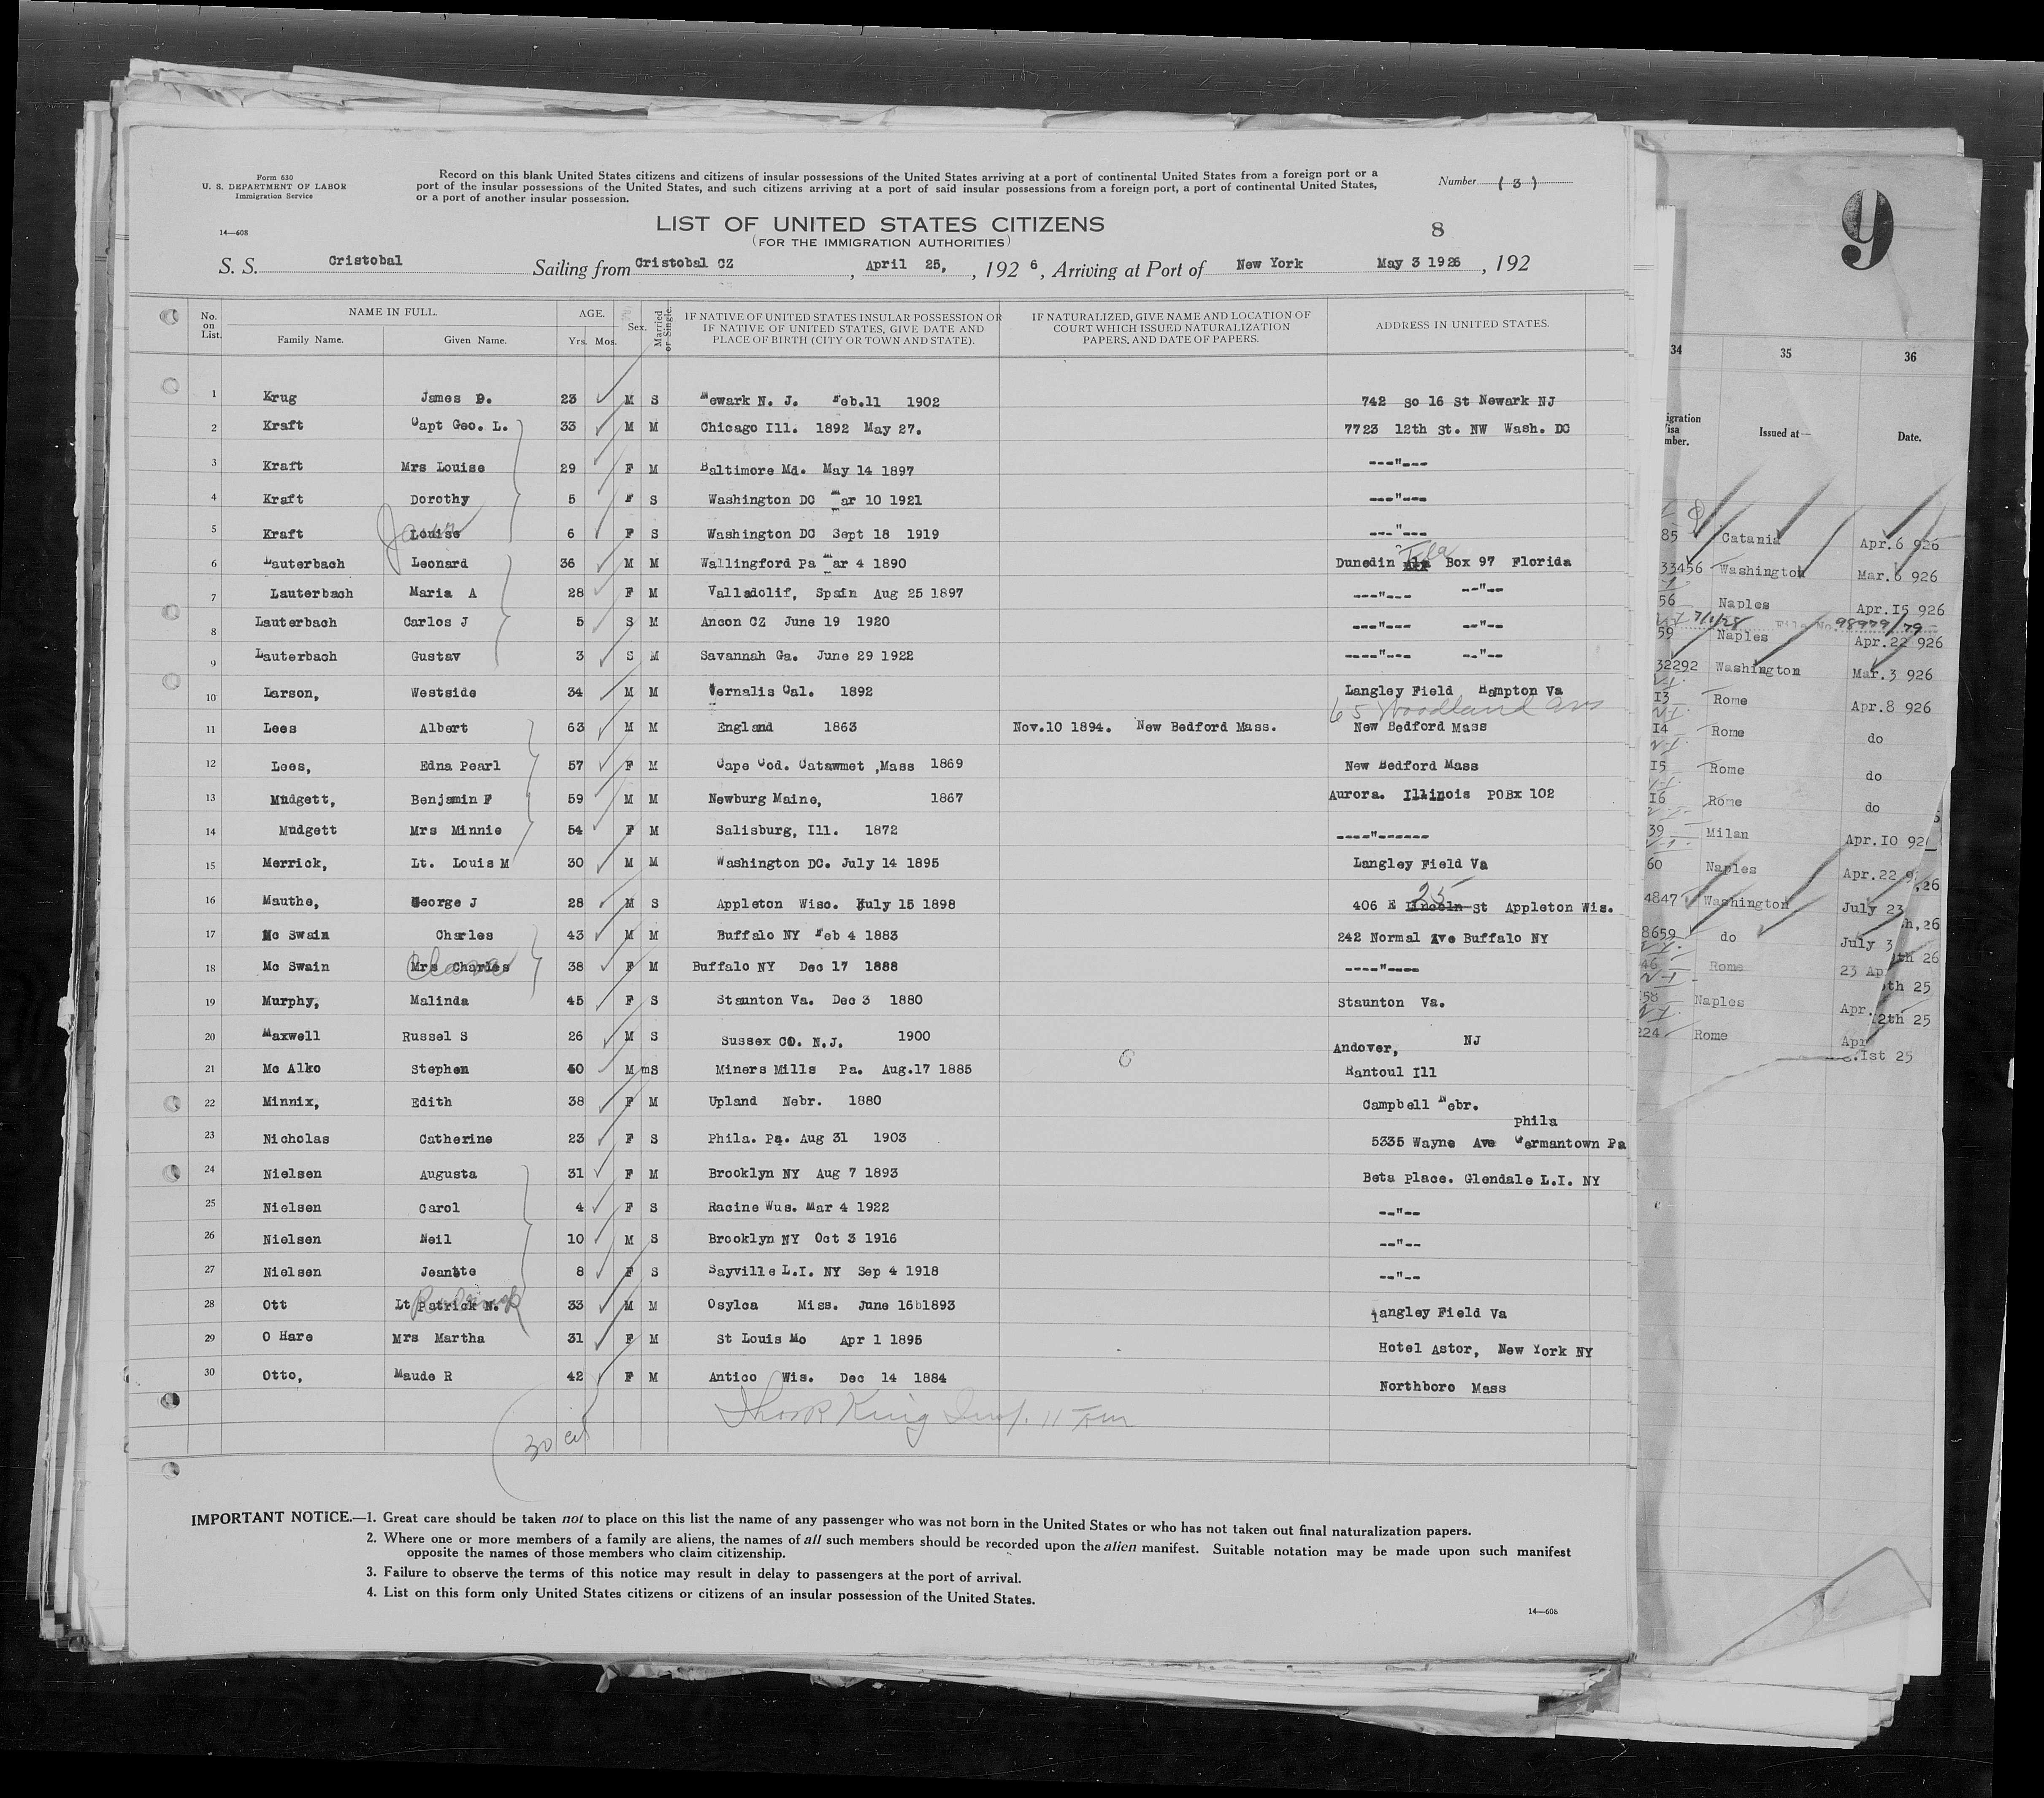 Form 630
U. S. DEPARTMENT OF LABOR
Immigration Service
14—608
Record on this blank United States citizens and citizens of insular possessions of the United States arriving at a port of continental United States from a foreign port or a
port of the insular possessions of the United States, and such citizens arriving at a port of said insular possessions from a foreign port, a port of continental United States,
or a port of another insular possession.
Number (3)
LIST OF UNITED STATES CITIZENS
(FOR THE IMMIGRATION AUTHORITIES)
8
S. S. Cristobal Sailing from Cristobal CZ, April 25, , 192 6, Arriving at Port of New York May 3 1926, 192
No. on List. NAME IN FULL. Family Name. Given Name. AGE. Yrs. Mos. Sex. Married or Single. IF NATIVE OF UNITED STATES INSULAR POSSESSION OR IF NATIVE OF UNITED STATES, GIVE DATE AND PLACE OF BIRTH (CITY OR TOWN AND STATE). IF NATURALIZED, GIVE NAME AND LOCATION OF COURT WHICH ISSUED NATURALIZATION PAPERS, AND DATE OF PAPERS. ADDRESS IN UNITED STATES.
1 Krug James D. 23 M S Newark N. J. Feb.11 1902 742 so 16 St Newark NJ
2 Kraft Capt Geo. L. 33 M M Chicago Ill. 1892 May 27. 7723 12th St. NW Wash. DC
3 Kraft Mrs Louise 29 F M Baltimore Md. May 14 1897 ---"---
4 Kraft Dorothy 5 F S Washington DC Mar 10 1921 ---"---
5 Kraft Louise 6 F S Washington DC Sept 18 1919 ---"---
6 Lauterbach Leonard 36 M M Wallingford Pa Mar 4 1890 Dunedin Fla Box 97 Florida
7 Lauterbach Maria A 28 F M Valladolif, Spain Aug 25 1897 ---"--- --"--
8 Lauterbach Carlos J 5 S M Ancon CZ June 19 1920 ---"--- --"--
9 Lauterbach Gustav 3 S M Savannah Ga. June 29 1922 ----"--- --"--
10 Larson, Westside 34 M M Vernalis Cal. 1892 Langley Field Hampton Va
65 Woodland Ave
11 Lees Albert 63 M M England 1863 Nov.10 1894. New Bedford Mass. New Bedford Mass
12 Lees, Edna Pearl 57 F M Cape Cod. Catawmet ,Mass 1869 New Bedford Mass
13 Mudgett, Benjamin F 59 M M Newburg Maine, 1867 Aurora. Illinois POBx 102
14 Mudgett Mrs Minnie 54 F M Salisburg, Ill. 1872 ----"------
15 Merrick, Lt. Louis M 30 M M Washington DC. July 14 1895 Langley Field Va
16 Mauthe, George J 28 M S Appleton Wisc. July 15 1898 406 E Lincoln St Appleton Wis.
25
17 Mc Swain Charles 43 M M Buffalo NY Feb 4 1883 242 Normal Ave Buffalo NY
18 Mc Swain Mrs Charles Clara 38 F M Buffalo NY Dec 17 1888 ----"----
19 Murphy, Malinda 45 F S Staunton Va. Dec 3 1880 Staunton Va.
20 Maxwell Russel S 26 M S Sussex CO. N.J. 1900 Andover, NJ
21 Mc Alko Stephen 40 M mS Miners Mills Pa. Aug.17 1885 Rantoul Ill
22 Minnix, Edith 38 F M Upland Nebr. 1880 Campbell Nebr.
23 Nicholas Catherine 23 F S Phila. Pa. Aug 31 1903 5335 Wayne Ave Germantown Pa
phila
24 Nielsen Augusta 31 F M Brooklyn NY Aug 7 1893 Beta Place. Glendale L.I. NY
25 Nielsen Carol 4 F S Racine Wus. Mar 4 1922 --"--
26 Nielsen Neil 10 M S Brooklyn NY Oct 3 1916 --"--
27 Nielsen Jeanette 8 F S Sayville L.I. NY Sep 4 1918 --"--
28 Ott Lt Patrick N. 33 M M Osylca Miss. June 16b1893 Langley Field Va
29 O Hare Mrs Martha 31 F M St Louis Mo Apr 1 1895 Hotel Astor, New York NY
30 Otto, Maude R 42 F M Antico Wis. Dec 14 1884 Northboro Mass
30
IMPORTANT NOTICE.—1. Great care should be taken not to place on this list the name of any passenger who was not born in the United States or who has not taken out final naturalization papers.
2. Where one or more members of a family are aliens, the names of all such members should be recorded upon the alien manifest. Suitable notation may be made upon such manifest
opposite the names of those members who claim citizenship.
3. Failure to observe the terms of this notice may result in delay to passengers at the port of arrival.
4. List on this form only United States citizens or citizens of an insular possession of the United States.
14—608
9
34 35 36
Issued at— Date.
85 Catania Apr.6 926
33456 Washington Mar.6 926
56 Naples Apr.15 926
7/1/28 File No. 98979/79
59 Naples Apr.22 926
32292 Washington Mar.3 926
13 Rome Apr.8 926
14 Rome do
15 Rome do
16 Rome do
39 Milan Apr.10 92
60 Naples Apr.22 9
4847 Washington July 23
8659 do July 3
46 Rome 23 Ap
58 Naples Apr.
224 Rome Apr
,26
h,26
th 26
th 25
2th 25
.Ist 25